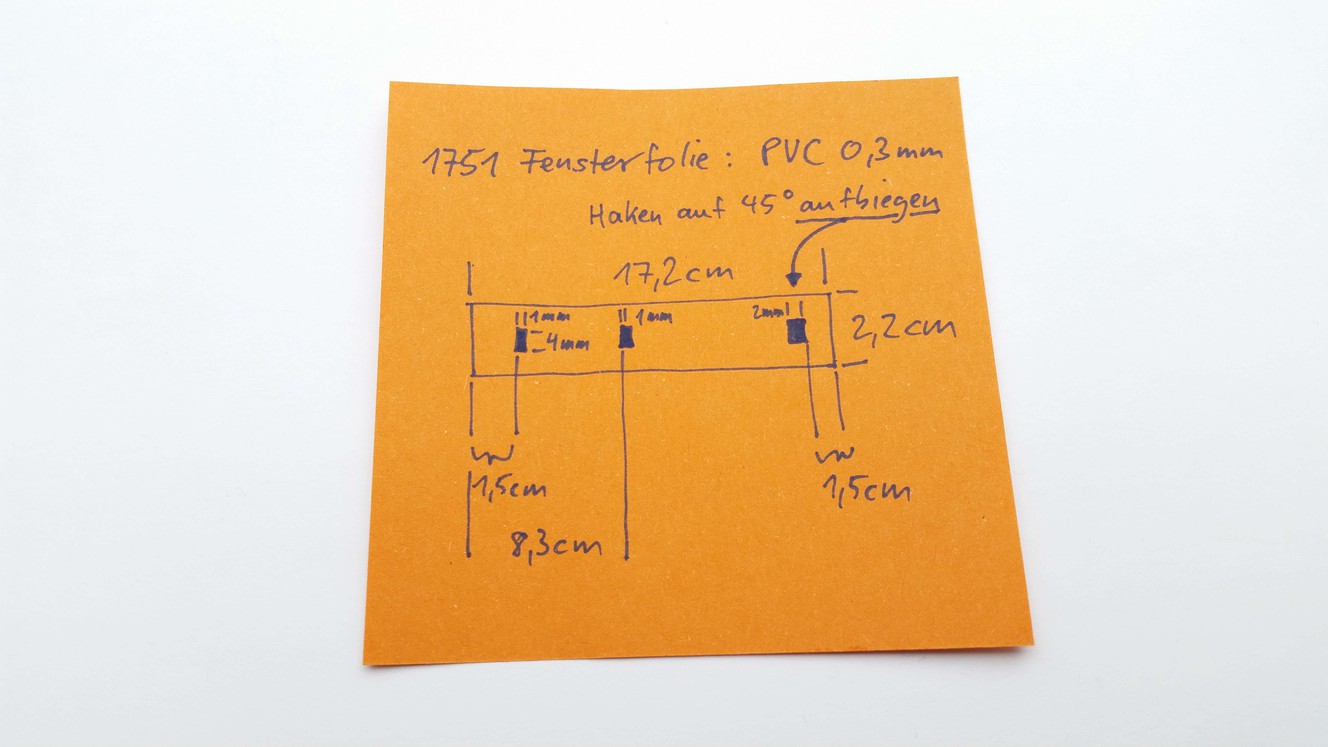 1751 Fensterfolie: PVC 0,3mm
Haken auf 45° aufbiegen
17,2cm
1mm
1mm
2mm
4mm
2,2cm
1,5cm
1,5cm
8,3cm